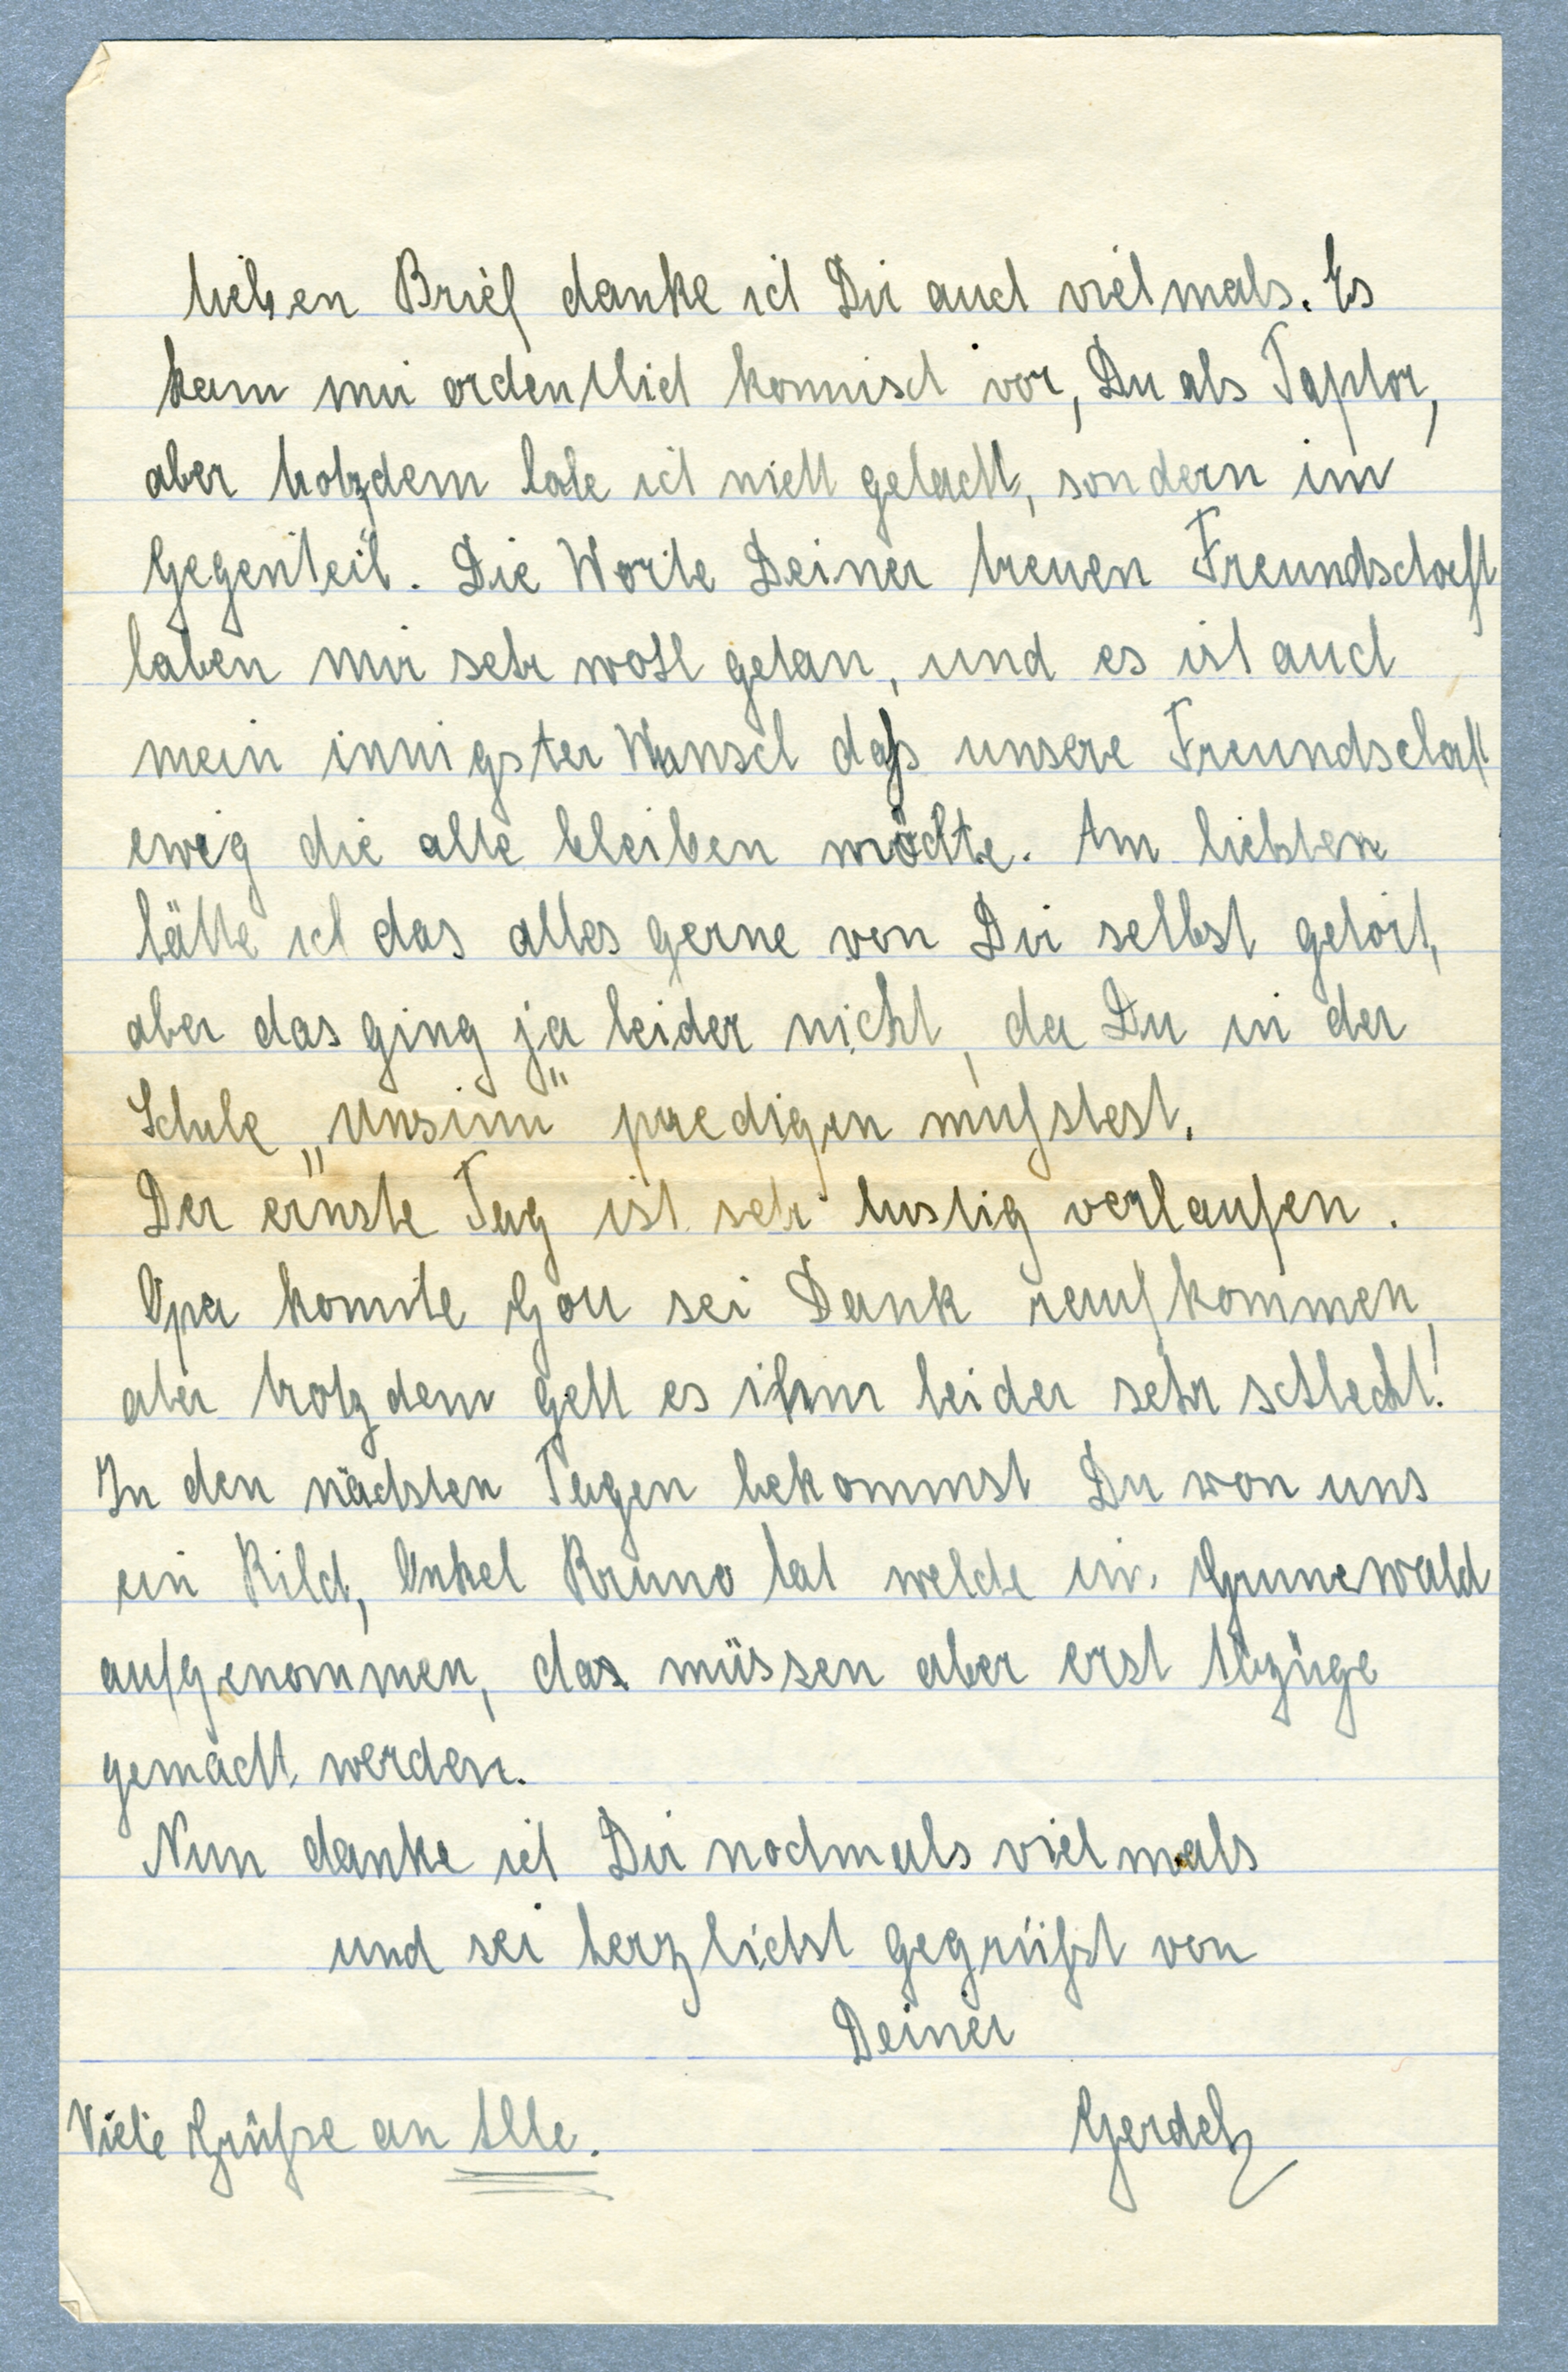 lieben Brief danke ich Dir auch vielmals. Es
kam mir ordentlich komisch vor, Du als
aber trotzdem habe ich nicht gelacht, sondern im
Gegenteil. Die Worte Deiner treuen Freundschaft
haben mir sehr wohl getan, und es ist auch
mein innigster Wunsch daß unsere Freundschaft
ewig die alte bleiben möchte. Am liebsten
hätte ich das alles gerne von Dir selbst gehört,
aber das ging ja leider nicht, da Du in der
Schule „Unsinn" predigen mußtest.
Der ernste Tag ist sehr lustig verlaufen.
Opa konnte Gott sei Dank raufkommen,
aber trotzdem geht es ihm leider sehr schlecht!
In den nächsten Tagen bekommst Du von uns
ein Bild, Onkel Bruno hat welche im Grunewald
aufgenommen, das müssen aber erst Abzüge
gemacht werden.
Nun danke ich Dir nochmals vielmals
und sei herzlichst gegrüßt von
Deiner
Viele Grüße an Alle. Gerdch